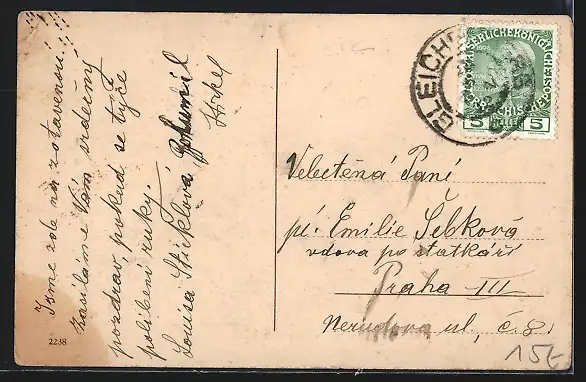 Jsme zde na zotavenou!!!
zasíláme Vám srdečný
pozdrav, pokud se týče
políbení ruky.
Louisa Stieklová Bohumil
2238
GLEICHE
KAISERLICHE KÖNIGL
ÖSTERREICHISCHE POST
5 HELLER 5
Velectěná Paní
pí. Emilie Šebková
vdova po statkáři
Praha III
Nerudova ul, č. 8.
15€